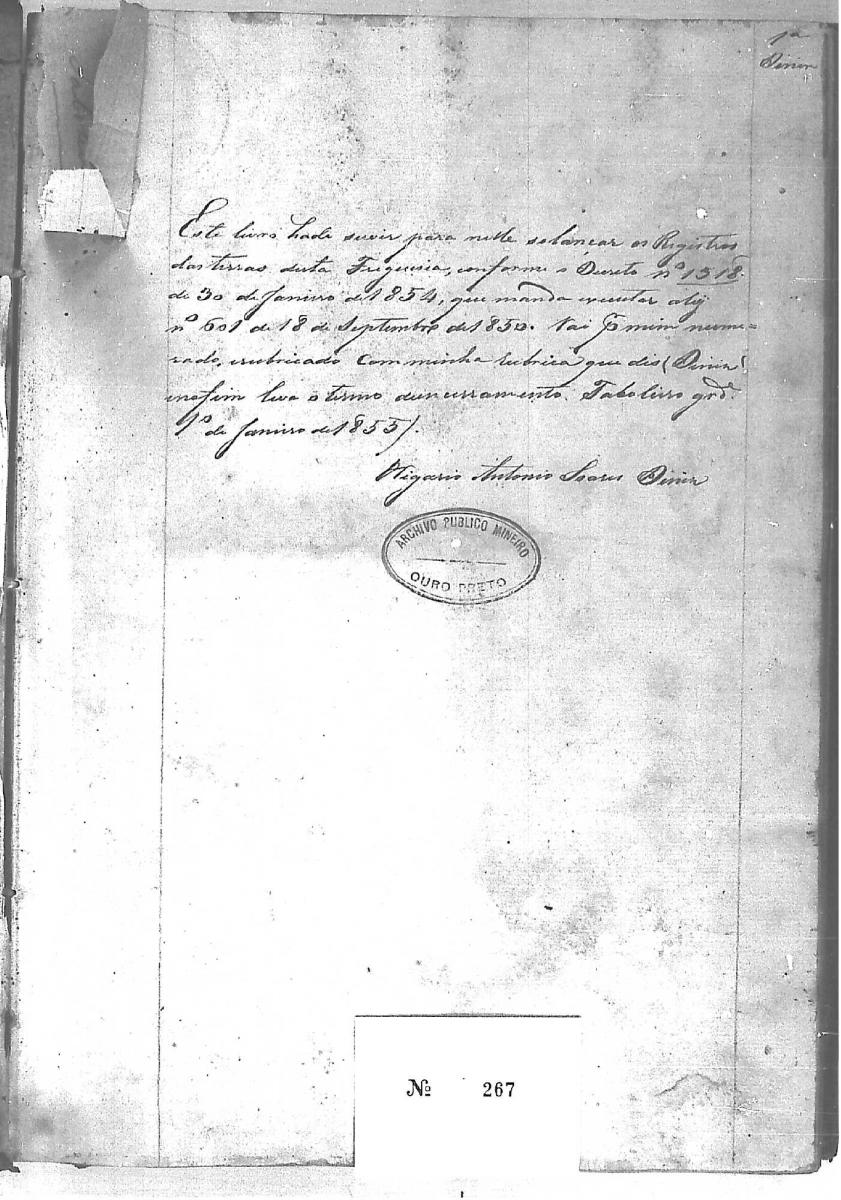 1ª
Diniz
Este livro hade servir para nelle selançar os Registros
das terras desta Freguesia, conforme o Decreto nº 1318.
de 30 de Janeiro de 1854, que manda executar a ley
nº 601 de 18 de Septembro de 1850. Vai p mim nume-
rado, erubricado com minha rubrica que dis (Diniz)
enofim leva o termo deencerramento. Taboleiro grd.
1º de Janeiro de 1855.
Vigario Antonio Soares Diniz
ARCHIVO PUBLICO MINEIRO
OURO PRETO
Nº 267